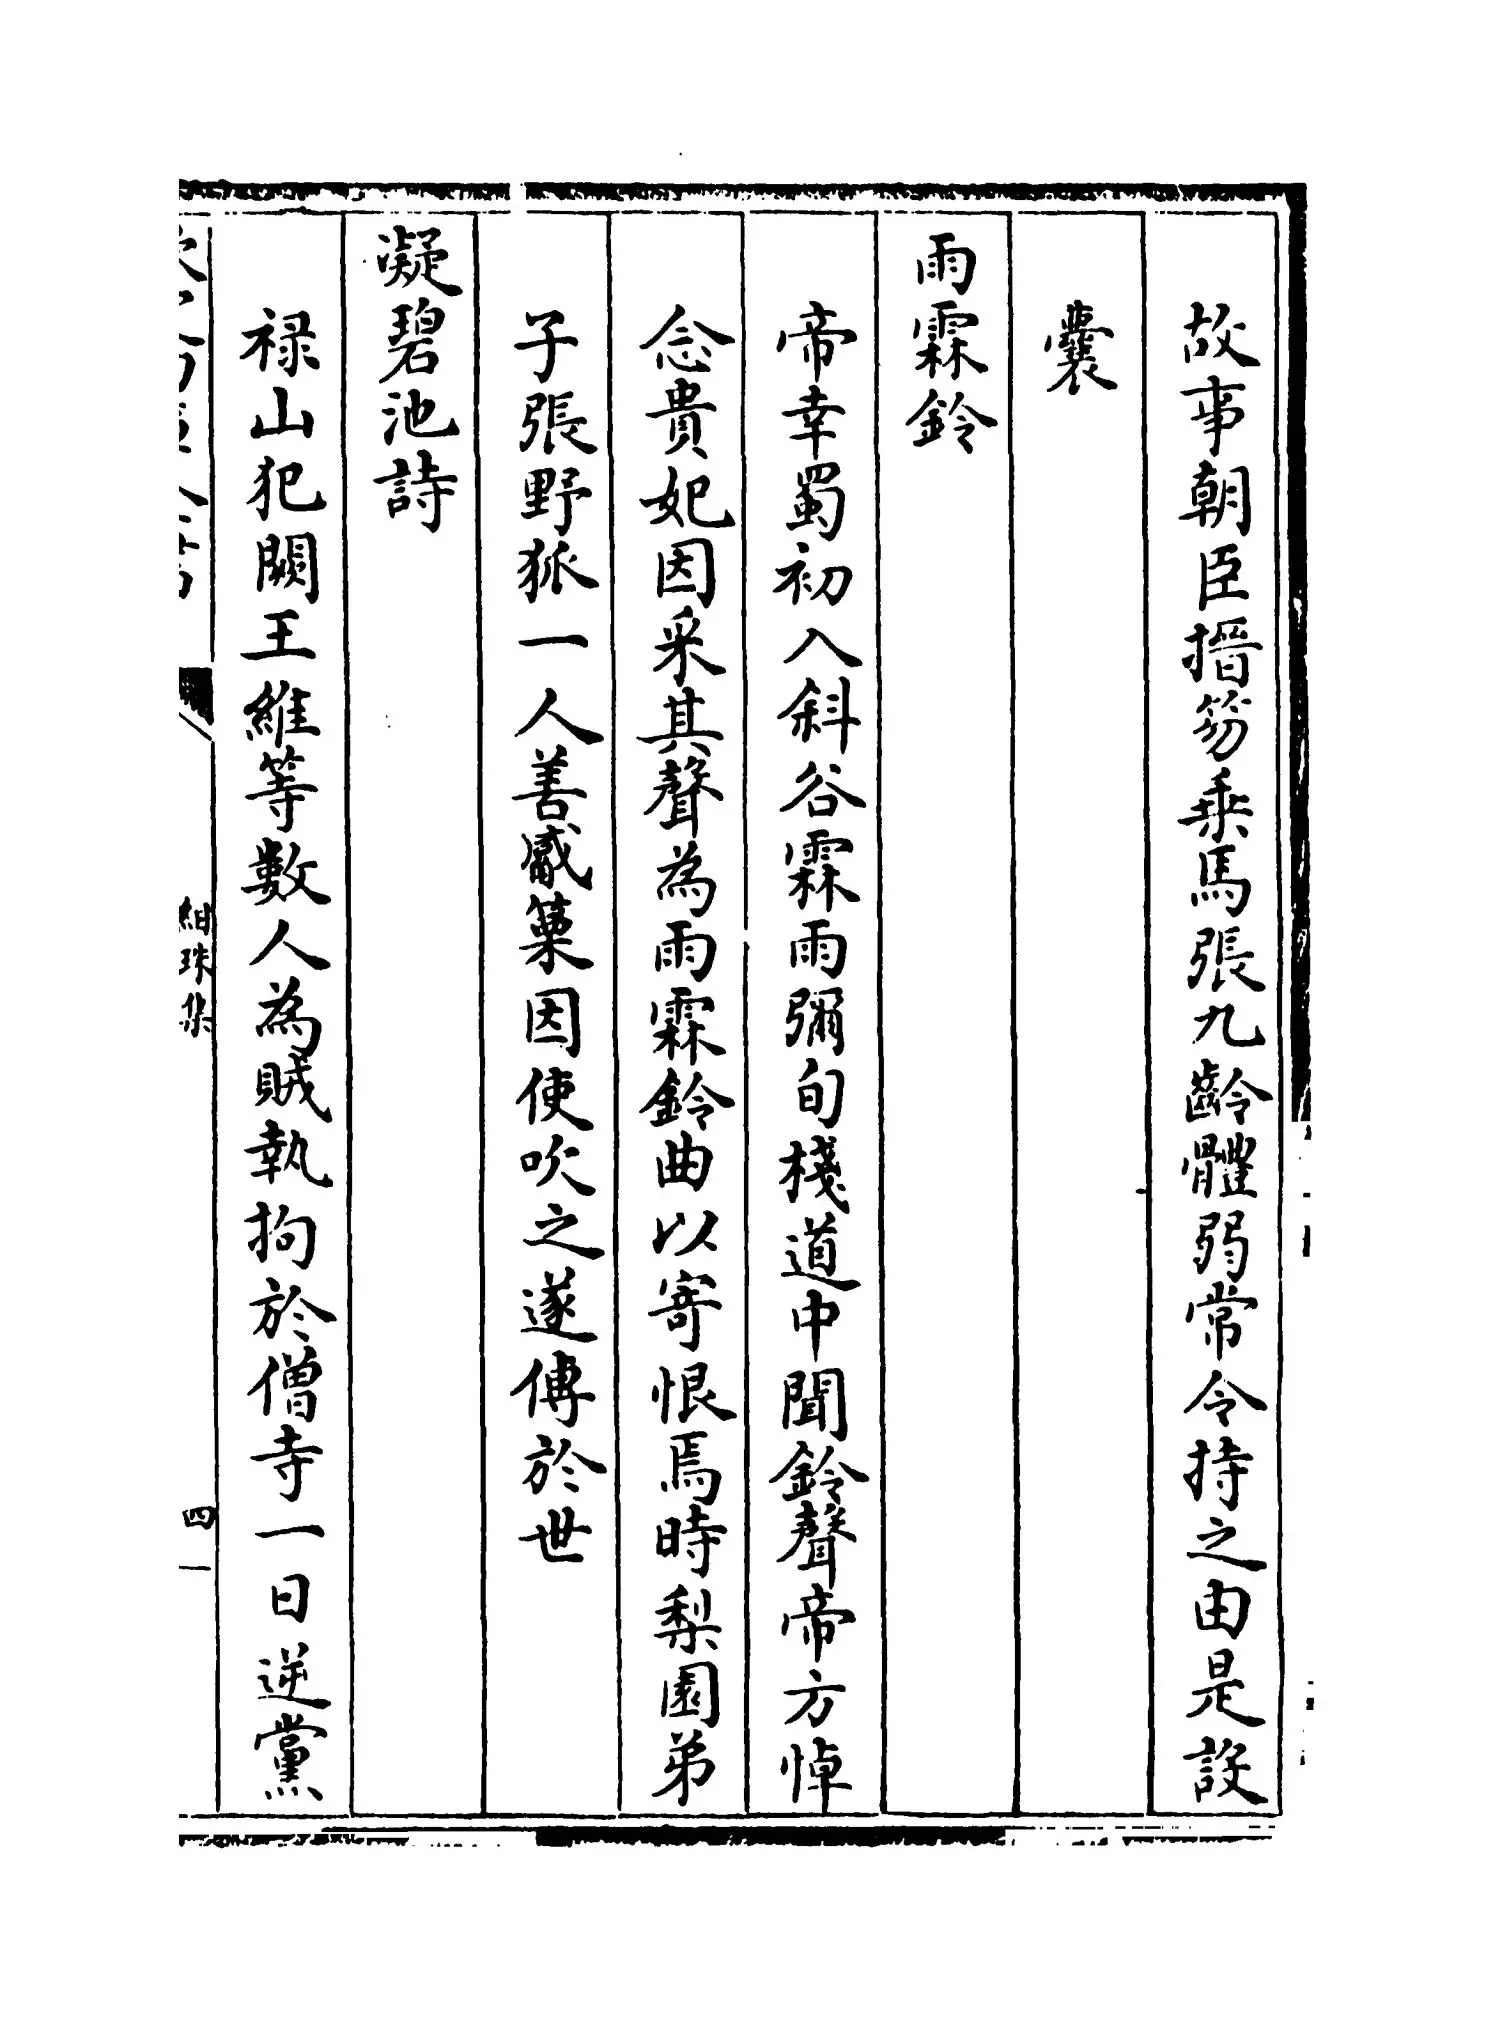 故事朝臣搢笏乗馬張九齡體弱常令持之由是設
囊
雨霖鈴
帝幸蜀初入斜谷霖雨彌旬棧道中聞鈴聲帝方悼
念貴妃因采其聲為雨霖鈴曲以寄恨焉時梨園弟
子張野狐一人善觱篥因使吹之遂傳於世
凝碧池詩
禄山犯闕王維等數人為賊執拘於僧寺一日逆黨
紺珠集
四